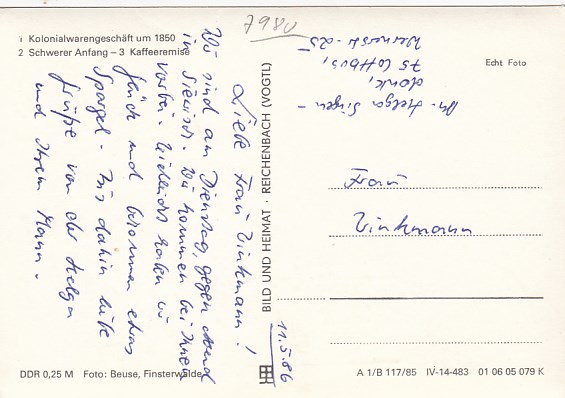 1 Kolonialwarengeschäft um 1850
2 Schwerer Anfang – 3 Kaffeeremise
7980
Echt Foto
Liebe Frau Vinkmann!
Wir sind am Dienstag, gegen Abend
in Siewisch. Wir kommen bei Ihnen
vorbei. Vielleicht haben wir
Glück und bekommen etwas
Spargel. Bis dahin liebe
Grüße von der Helga
und Ihrem Mann.
11.5.86
Helga
75 Cottbus,
BILD UND HEIMAT · REICHENBACH (VOGTL)
Frau
Vinkmann
DDR 0,25 M Foto: Beuse, Finsterwalde
A 1/B 117/85 IV-14-483 01 06 05 079 K